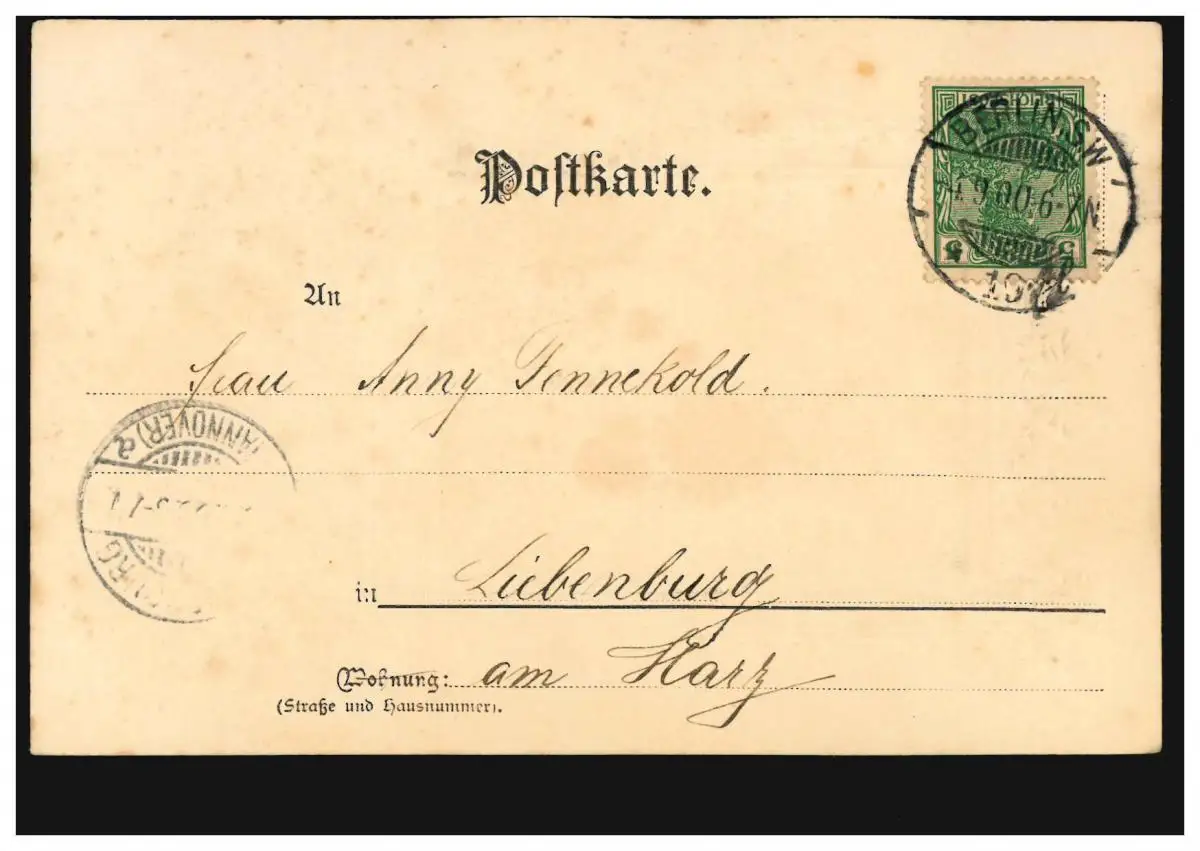 Postkarte.
BERLIN.S.W.
9.00.6-7N
19
5 5
An
Frau Anny Fennekold.
(HANNOVER)
a
in Liebenburg
Wohnung: am Harz
(Straße und Hausnummer).